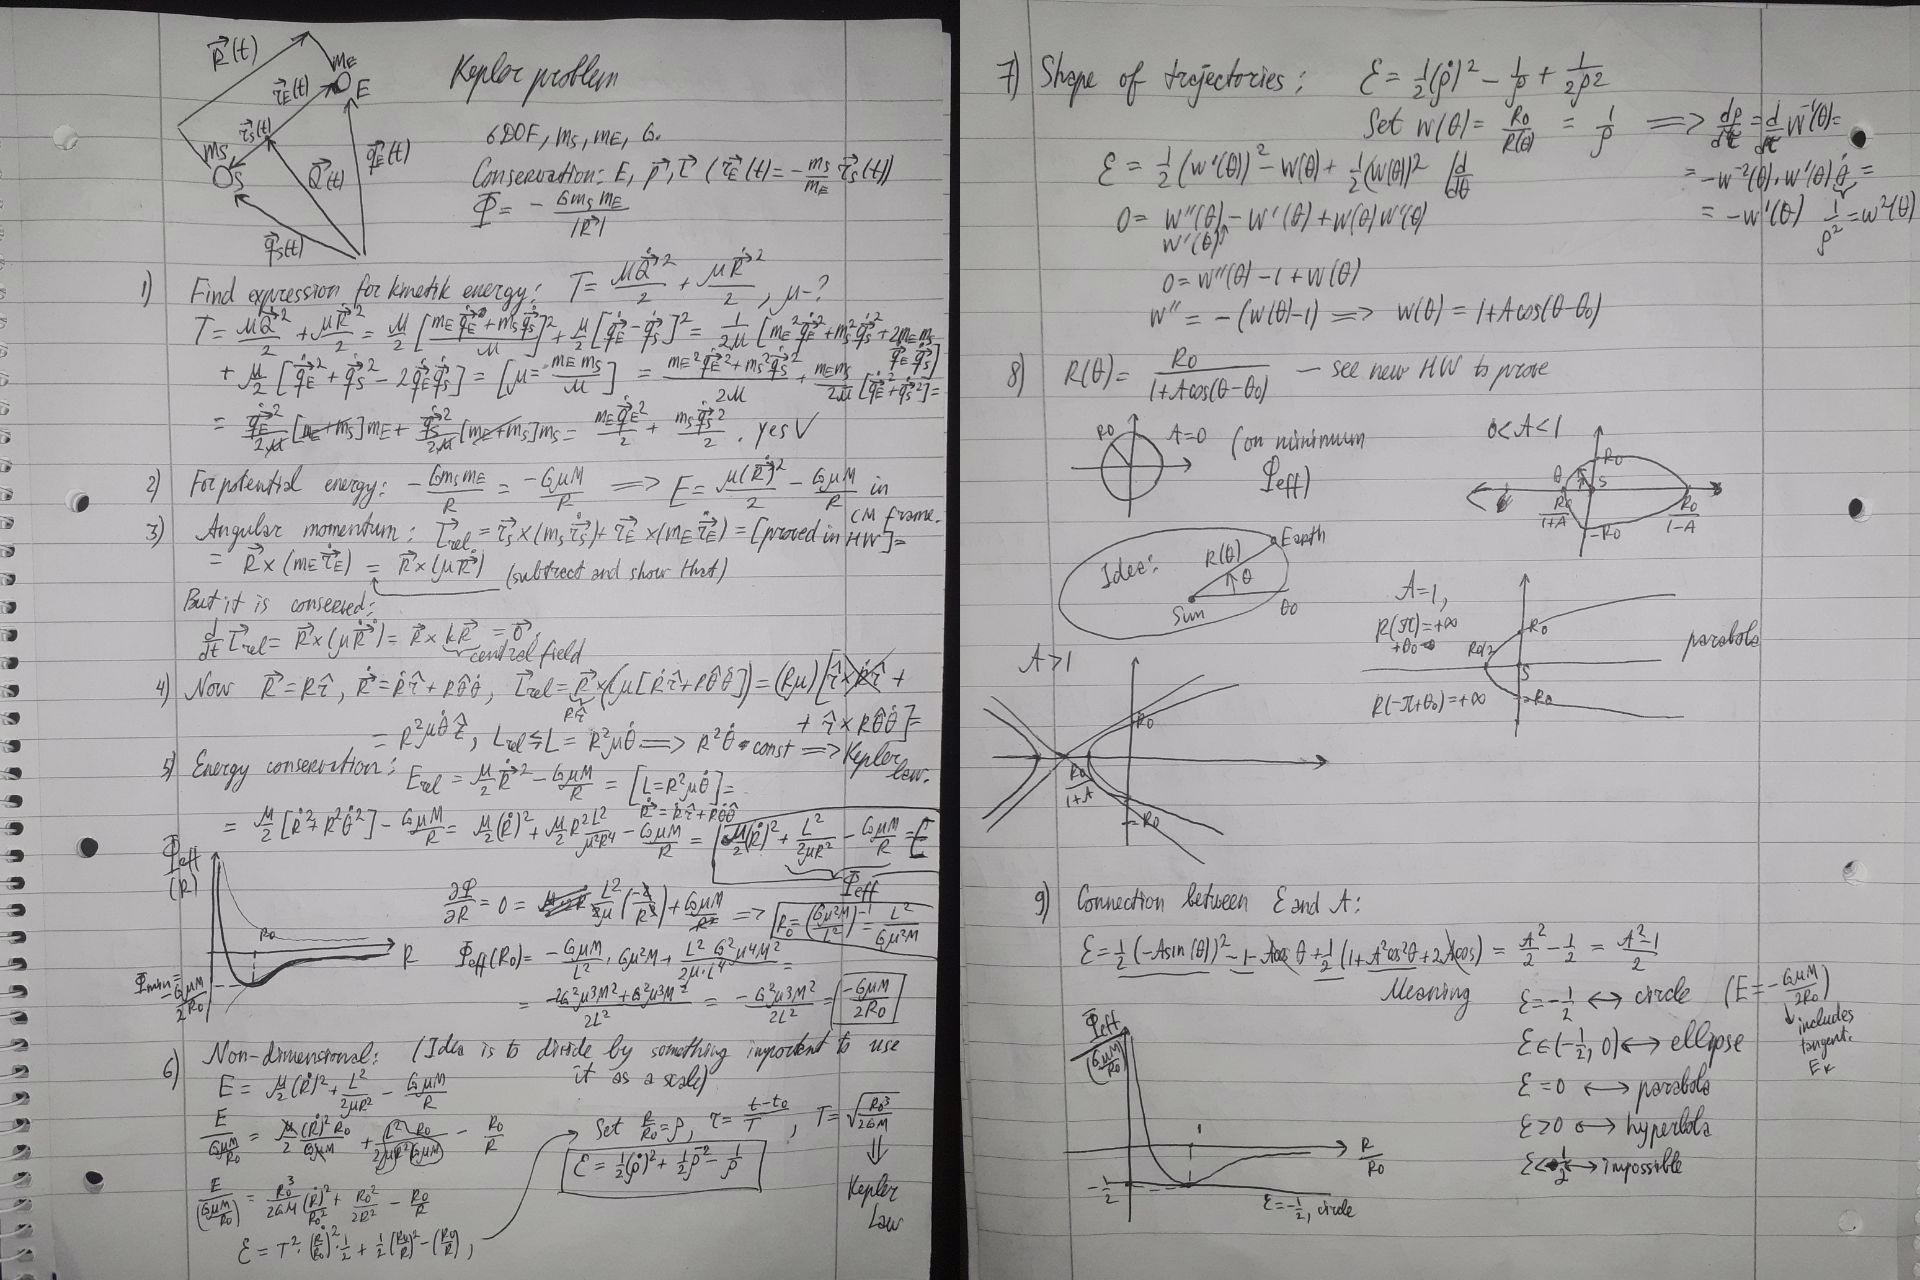 Kepler problem
R⃗(t)
mE
E
r⃗E(t)
r⃗s(t)
ms
S
Q⃗(t)
q⃗E(t)
q⃗s(t)
6DOF, ms, mE, G.
Conservation: E, p⃗, L⃗ (r⃗E(t) = -ms/mE r⃗s(t))
Φ = - Gms mE/|R⃗|
1) Find expression for kinetik energy: T = MQ̇⃗²/2 + μṘ⃗²/2, μ-?
T = MQ̇⃗²/2 + μṘ⃗²/2 = M/2 [mE q̇⃗E + ms q̇⃗s/M]² + μ/2 [q̇⃗E - q̇⃗s]² = 1/2M [mE² q̇⃗E² + ms² q̇⃗s² + 2mE ms q̇⃗E q̇⃗s]
+ μ/2 [q̇⃗E² + q̇⃗s² - 2q̇⃗E q̇⃗s] = [μ = mE ms/M] = mE² q̇⃗E² + ms² q̇⃗s²/2M + mE ms/2M [q̇⃗E² + q̇⃗s²] =
= q̇⃗E²/2M [mE + ms] mE + q̇⃗s²/2M [mE + ms] ms = mE q̇⃗E²/2 + ms q̇⃗s²/2. yes V
2) For potential energy: - Gms mE/R = -GμM/R ⟹ E = μ(Ṙ⃗)²/2 - GμM/R in CM frame.
3) Angular momentum: L⃗rel = r⃗s×(ms ṙ⃗s) + r⃗E×(mE ṙ⃗E) = [proved in HW] =
= R⃗×(mE ṙ⃗E) = R⃗×(μṘ⃗) (subtract and show that)
But it is conserved:
d/dt L⃗rel = R⃗×(μR̈⃗) = R⃗×kR⃗ = 0⃗.
central field
4) Now R⃗ = Rr̂, Ṙ⃗ = Ṙr̂ + Rθ̂θ̇, L⃗rel = R⃗×(μ[Ṙr̂ + Rθ̂θ̇]) = (Rμ)[r̂×Ṙr̂ +
Rr̂
+ r̂×Rθ̂θ̇] =
= R²μθ̇ẑ, Lrel ≡ L = R²μθ̇ ⟹ R²θ̇ = const ⟹ Kepler law.
5) Energy conservation: Erel = μ/2 Ṙ⃗² - GμM/R = [L = R²μθ̇] =
Ṙ⃗ = Ṙr̂ + Rθ̇θ̂
= μ/2 [Ṙ² + R²θ̇²] - GμM/R = μ/2 (Ṙ)² + μ/2 R²L²/μ²R⁴ - GμM/R = μ/2 (Ṙ)² + L²/2μR² - GμM/R = E
Φeff
Φeff (R)
∂Φ/∂R = 0 = L²/2μ (-2/R³) + GμM/R² ⟹ R0 = (Gμ²M/L²)⁻¹ = L²/Gμ²M
R0
R
Φmin = -GμM/2R0
Φeff(R0) = -GμM/L² · Gμ²M + L² G²μ⁴M²/2μ·L⁴ =
= -2G²μ³M² + G²μ³M²/2L² = -G²μ³M²/2L² = -GμM/2R0
6) Non-dimensional: (Idea is to divide by something important to use
it as a scale)
E = μ/2 (Ṙ)² + L²/2μR² - GμM/R
E/(GμM/R0) = μ/2 (Ṙ)² R0/GμM + L² R0/2μR²(GμM) - R0/R
Set R/R0 = ρ, τ = t-t0/T, T = √(R0³/2GM)
E/(GμM/R0) = R0³/2GM (Ṙ)²/R0² + R0²/2R² - R0/R
ℰ = ½(ρ̇)² + ½ρ⁻² - 1/ρ
⇓
Kepler
Law
ℰ = T²·(Ṙ/R0)²·½ + ½(R0/R)² - (R0/R),
7) Shape of trajectories: ℰ = ½(ρ̇)² - 1/ρ + 1/2ρ²
Set w(θ) = R0/R(θ) = 1/ρ ⟹ dρ/dτ = d/dτ w⁻¹(θ) =
ℰ = ½(w'(θ))² - w(θ) + ½(w(θ))² | d/dθ
= -w⁻²(θ)·w'(θ) θ̇ =
0 = w''(θ) - w'(θ) + w(θ)w'(θ)
w'(θ)↑
= -w'(θ) 1/ρ² = w²(θ)
0 = w''(θ) - 1 + w(θ)
w'' = -(w(θ)-1) ⟹ w(θ) = 1+Acos(θ-θ0)
8) R(θ) = R0/1+Acos(θ-θ0) — see new HW to prove
R0
A=0 (on minimum
Φeff)
0<A<1
R0
θ
S
R0/1+A
-R0
R0/1-A
Idea:
R(θ)
Earth
θ
Sun
θ0
A=1,
R(π+θ0) = +∞
R0
R0/2
S
parabola
R(-π+θ0) = +∞
-R0
A>1
R0
R0/1+A
-R0
9) Connection between ℰ and A:
ℰ = ½(-Asin(θ))² - 1 - Acosθ + ½(1+A²cos²θ+2Acos) = A²/2 - ½ = A²-1/2
Meaning
ℰ = -½ ⟷ circle (E = -GμM/2R0)
↓ includes
tangent.
Ek
ℰ∈(-½, 0) ⟷ ellipse
ℰ = 0 ⟷ parabola
ℰ>0 ⟷ hyperbola
ℰ<-½ ⟷ impossible
Φeff/(GμM/R0)
1
R/R0
-½
ℰ = -½, circle